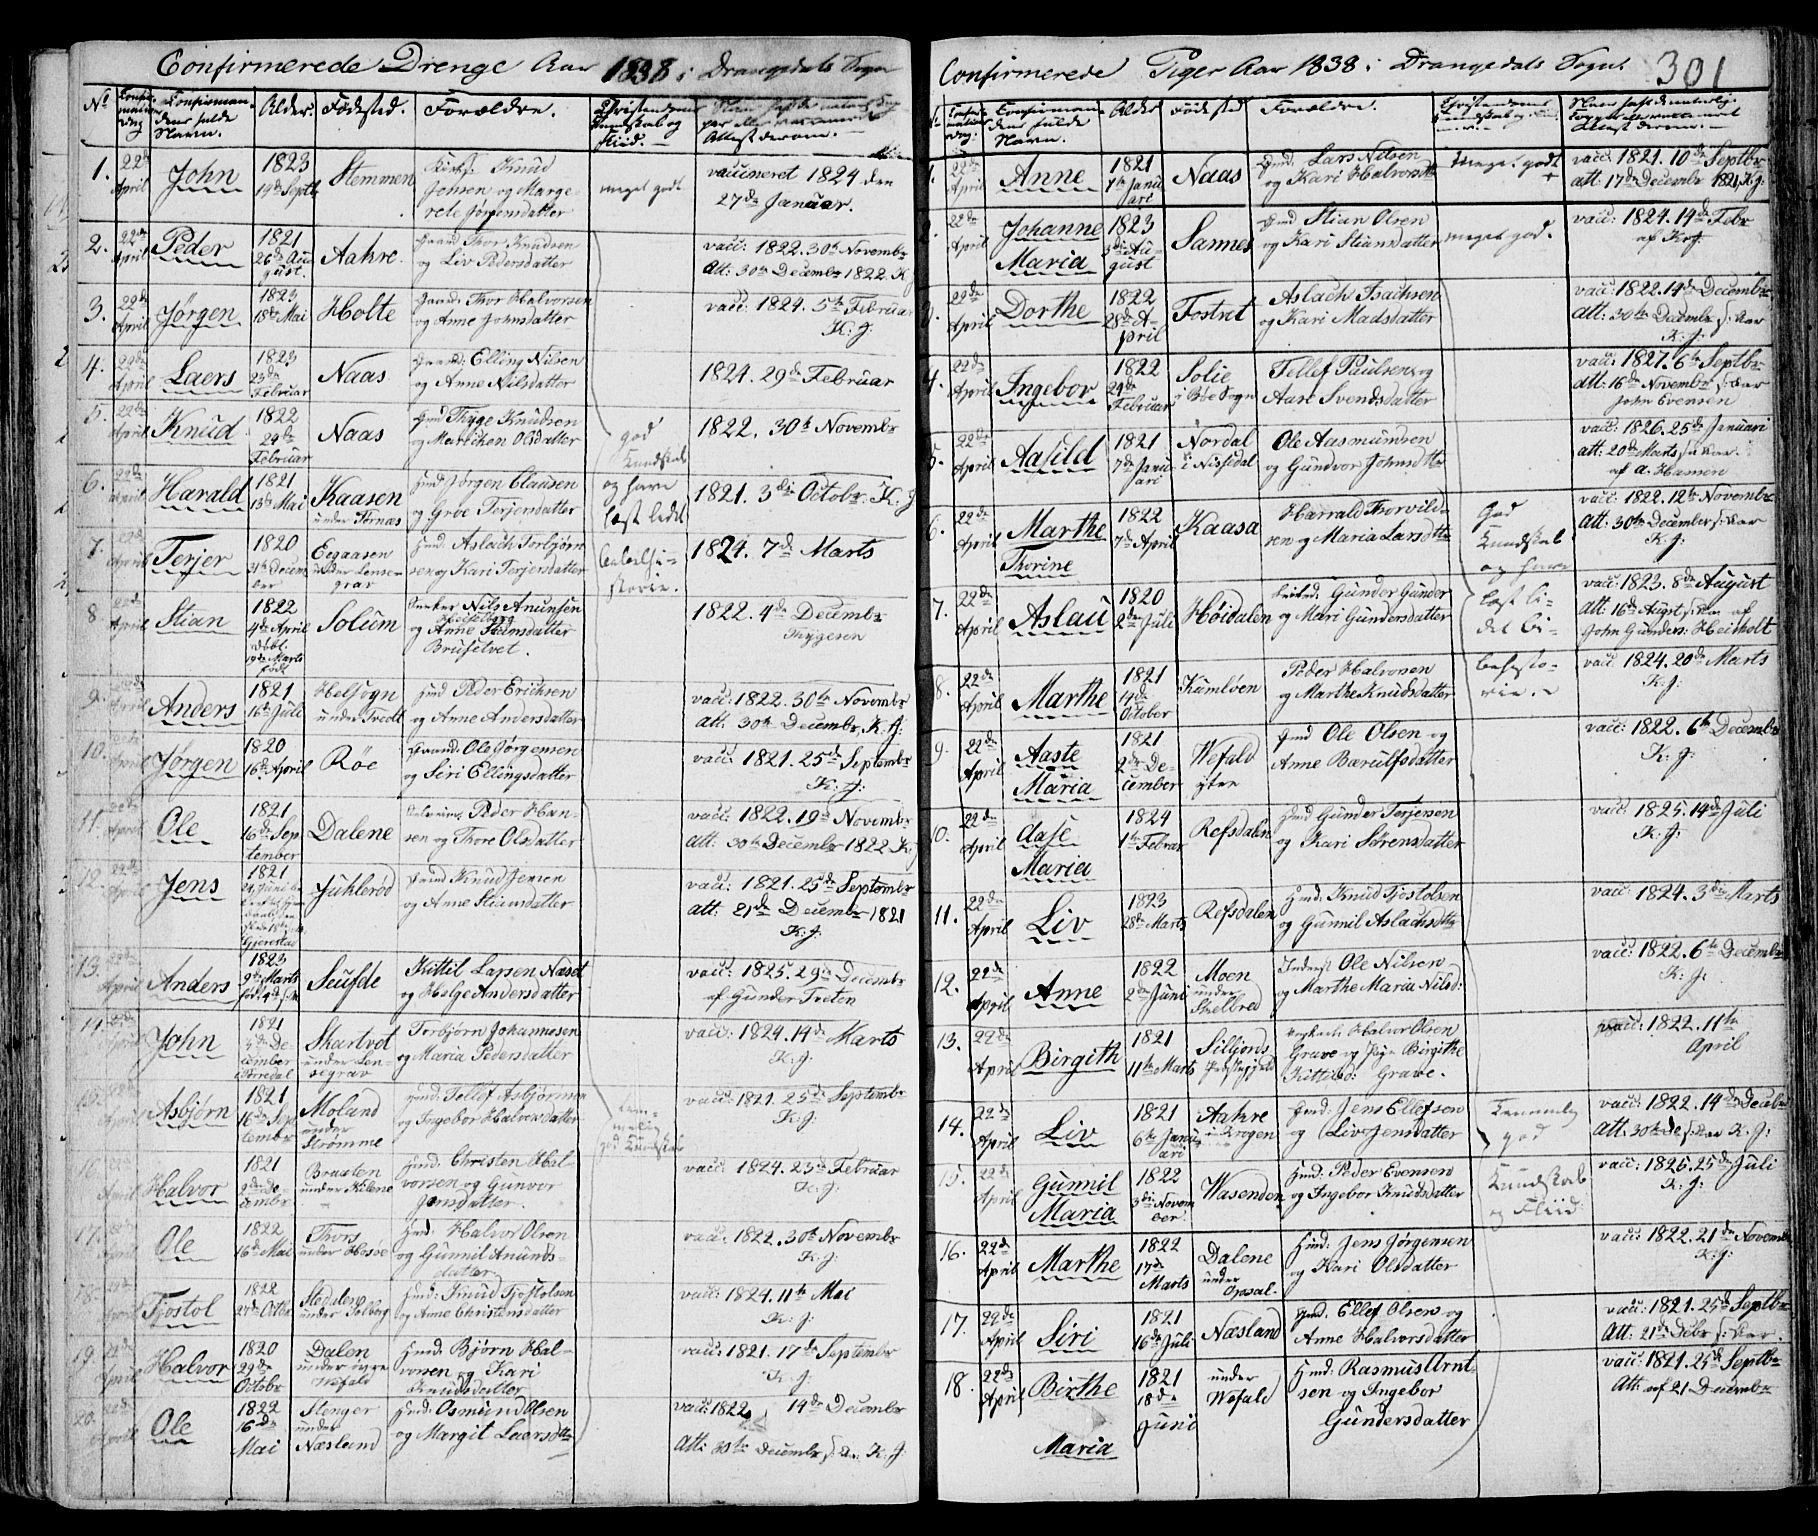 Confirmerede Drenge Aar 1838 i Drangedals Sogn
No Confirmations Dag Confirmandens fulde Navn. Alder. Fødested. Forældre. Christendoms Kundskab og Fliid.
1. 22de April John 1823 14de Septbr Stemmen Knud Johsen og Margerete Jørgensdatter meget godt vaccineret 1824 den 27de Januar.
2. 22de April Peder 1821 26de August Aakre. Thor Knudsen og Liv Pedersdatter vacc: 1822. 30te Novembr Att: 30te Decembr 1822. K. J
3. 22de April Jørgen 1823 18de Mai Holte Thor Halvorsen og Anne Johnsdatter vacc: 1824. 5te Februar K. J:
4. 22de April Laers 1823 23de Februar Naas Elling Nilsen og Anne Nilsdatter 1824. 29de Februar
5. 22de April Knud 1822 29de Februar Naas Thyge Knudsen og Mariken Olsdatter god Kundskab 1822. 30te Novembr
6. 22de April Harald 1821 13de Mai Kaasen under Tørnæs Jørgen Clausen og Groe Terjersdatter og have læst lidet 1821. 3die Octobr. K. J
7. 22de April Terjer 1820 21de December Eegaasen under Lensegrav Aslach Torbjørnsen og Kari Terjersdatter bibelhistorie. 1824. 7de Marts
8 22de April Stian 1822 4de April Døbt 19de Marts født Solum Nils Anunsen og Anne Stiansdatter Brusetvet. 1822. 4de Decembr Thygesen
9. 22de April Anders 1821 16de Juli Helsogn under Tvedt Peder Erichsen og Anne Andersdatter vacc: 1822. 30te Novembr Att: 30te Decembr. K. J:
10. 22de April Jørgen 1820 16de April Röe Ole Jørgensen og Siri Ellingsdatter vacc: 1821. 25de Septembr K. J:
11. 22de April Ole 1821 16de September Dalene Peder Hansen og Thore Olsdatter vacc: 1822. 19de Novembr Att: 30te Decembr 1822 K J
12. 22de April Jens 1821 24. Juni Gjerestad Juklerød Knud Jensen og Anne Stiensdatter vacc: 1821. 25de Septembr att: 21de Decembr 1821 K. J:
13. 22de April Anders 1823 9de Marts Seufde Kittil Larsen Næset og Helge Andersdatter vacc: 1825. 29de Decembr af Gunder Treten
14. 22de April John 1821 5de December i Tørredal Skartvet under Lensegrav Torbjörn Johannesen og Maria Pedersdatter vacc: 1824. 14de Marts K. J:
15. 22de April Asbjørn 1821 16de September Moland under Strømme Tellef Asbjörnsen og Ingebor Halvorsdatter temmelig god Kundskab vacc: 1821. 25de Septembr K. J:
16. 22de April Halvor 1821 2de December Braaten under Kilene Christen Halvorsen og Gunvor Jensdatter. vacc: 1824. 23de Februar K. J:
17. 22de April Ole 1822 16de Mai Thors under Hosöe Halvor Olsen og Gunnil Anundsdatter vacc: 1822. 30te Novembr K. J:
18. 22de April Tjostol 1822 27de Octbr Stedalen under Solberg Knud Tjostolsen og Anne Christensdatter vacc: 1824. 11te Mai K. J:
19. 22de April Halvor 1820 29de Octobr Dalen under Wefald Bjørn Halvorsen og Kari Knudsdatter vacc: 1821. 17de Septembr K. J:
20. 22de April Ole 1822 16de Mai Stenger under Næsland Osmund Olsen og Margit Laersdtr vacc: 1822 14de Decembr Att: 30te Decembr K. J
Confirmerede Piger Aar 1838 i Drangedals Sogn. 301
Confirmations Dag. Confirmandens fulde Navn. Alder Fødested Forældre.
1. 22de April Anne 1821 7de Januari Naas Lars Nilsen og Kari Halvorsdtr Meget godt vacc: 1821. 10de Septbr att: 17de Decembr 1821, K. J:
2. 22de April Johanne Maria 1823 3die August Sannes Stian Olsen og Kari Stiansdatter meget god. vacc: 1824. 14de Febr af K. J.
3. 22de April Dorthe 1822 28de April Fostvet Aslach Isachsen og Kari Madsdatter vacc: 1822. 14de Decembr att: 30te Decembr K. J:
4. 22de April Ingebor 1822 29de Februar Solie i Böe Sogn Tellef Paulsen og Aase Svendsdatter vacc: 1827. 6te Septbr att: 16de Novembr John Evensen
5. 22de April Aasild 1821 7de Januari Nordal i Nissedal Ole Aasmundsen og Gundvor Johnsdtr vacc: 1826. 25de Januari att: 20de Marts af A. Hansen
6. 22de April Marthe Thorine 1822 7de April Kaasa Harrald Thorvildsen og Maria Larsdtr God Kundskab vacc: 1822. 12te Novembr att: 30te Decembr K. J:
7. 22de April Aslau 1820 2de Juli Höidalen Gunder Gunder og Mari Gundersdatter og have læst lidet bi- vacc: 1823. 8de August Att: 16de Augst af John Gunders: Heisholt
8. 22de April Marthe 1821 14de October Kumlöen Peder Halvorsen og Marthe Knudsdatter belhistorie. vacc: 1824. 20de Marts K. J:
9. 22de April Aaste Maria 1821 2de December Wefald ytre Ole Olsen og Anne Bærulfsdatter vacc: 1822. 6te Decembr K. J:
10. 22de April Aase Maria 1824 1te Februar Refsdalen Gunder Terjersen og Kari Sörensdatter vacc: 1825. 14de Juli K. J:
11. 22de April Liv 1823 28de Marts Refsdalen Knud Tjostolsen og Gunnil Aslachsdtr vacc: 1824. 3die Marts
12. 22de April Anne 1822 2de Juni Moen under Skelbred Inderst Ole Nilsen og Marthe Maria Nilsd: vacc: 1822. 6te Decembr K. J:
13. 22de April Birgith 1821 11te Marts Silljords Halvor Olsen Grave og Birgithe Kittilsd: Grave. vacc: 1822. 11te April
14. 22de April Liv 1821 6te Januari Aakre i Krogen Jens Ellefsen og Liv Jensdatter Temmelig god vacc: 1822. 14de Decbr Att: 30te De K. J:
15. 22de April Gunnil Maria 1822 3die November. Wasenden Peder Evensen og Ingebor Knudsdatter Kundskab og Fliid. vacc: 1825. 25de Juli K. J:
16. 22de April Marthe 1822 17de Marts Dalene under Opsal. Jens Jørgensen og Kari Olsdatter vacc: 1822. 21de Novembr K. J:
17. 22de April Siri 1821 16de Juli Næsland Ellef Olsen og Anne Halvorsdatter vacc: 1821. 25de Septbr Att: 21de Decbr
18. 22de April Birthe Maria 1821 18de Juni under Wefald Rasmus Arntsen og Ingebor Gundersdatter vacc: 1821. 25de Septbr Att: af 21 Decembr